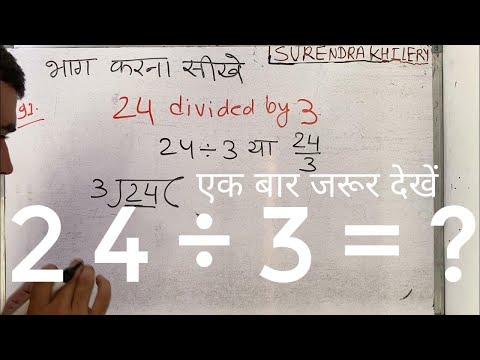 SURENDRA KHILERY
भाग करना सीखे
Q1. 24 divided by 3
24÷3 या 24/3
3)24(
एक बार जरूर देखें
24÷3=?